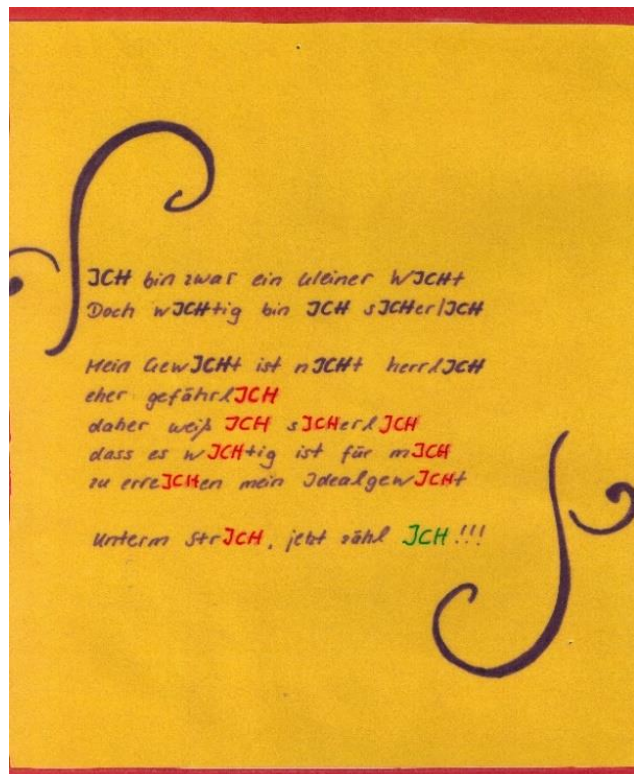 ICH bin zwar ein kleiner WICHt
Doch wICHtig bin ICH sICHerlICH
Mein GewICHt ist nICHt herrlICH
eher gefährlICH
daher weiß ICH sICHerlICH
dass es wICHtig ist für mICH
zu erreICHen mein IdealgewICHt
Unterm StrICH, jetzt zähl ICH!!!